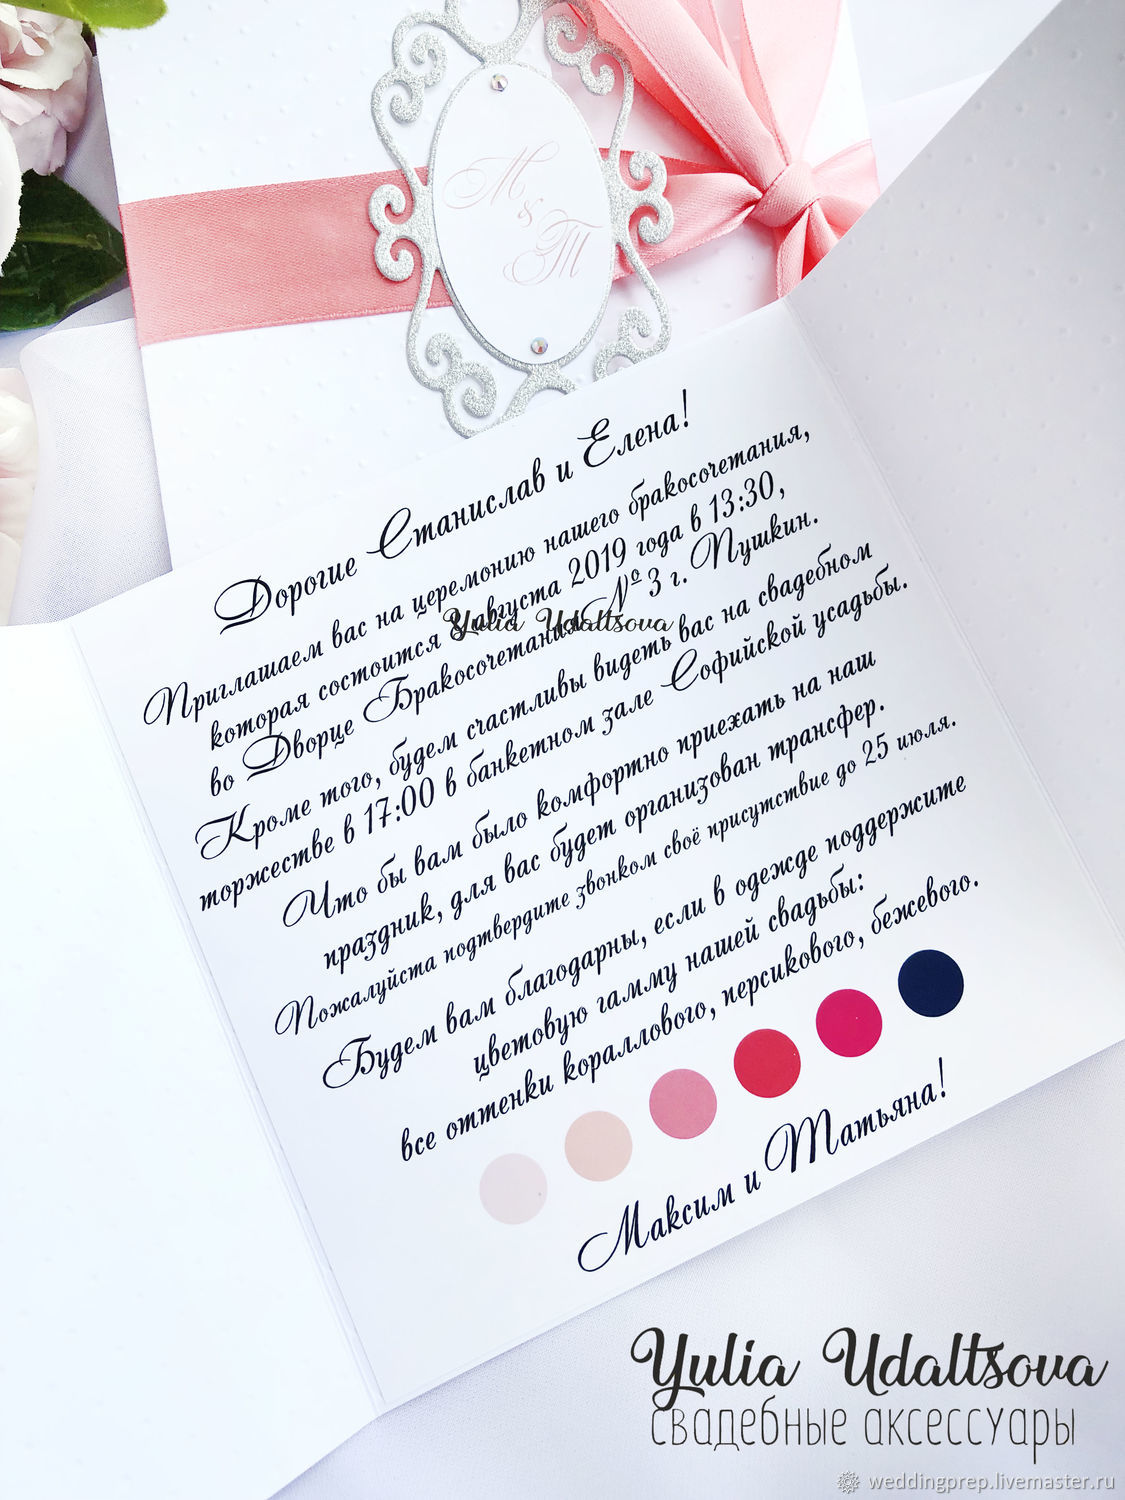 М
&
Т
Дорогие Станислав и Елена!
Приглашаем вас на церемонию нашего бракосочетания,
которая состоится августа 2019 года в 13:30,
во Дворце Бракосочетания №3 г. Пушкин.
Yulia Udaltsova
Кроме того, будем счастливы видеть вас на свадебном
торжестве в 17:00 в банкетном зале Софийской усадьбы.
Что бы вам было комфортно приехать на наш
праздник, для вас будет организован трансфер.
Пожалуйста подтвердите звонком своё присутствие до 25 июля.
Будем вам благодарны, если в одежде поддержите
цветовую гамму нашей свадьбы:
все оттенки кораллового, персикового, бежевого.
Максим и Татьяна!
Yulia Udaltsova
свадебные аксессуары
weddingprep.livemaster.ru